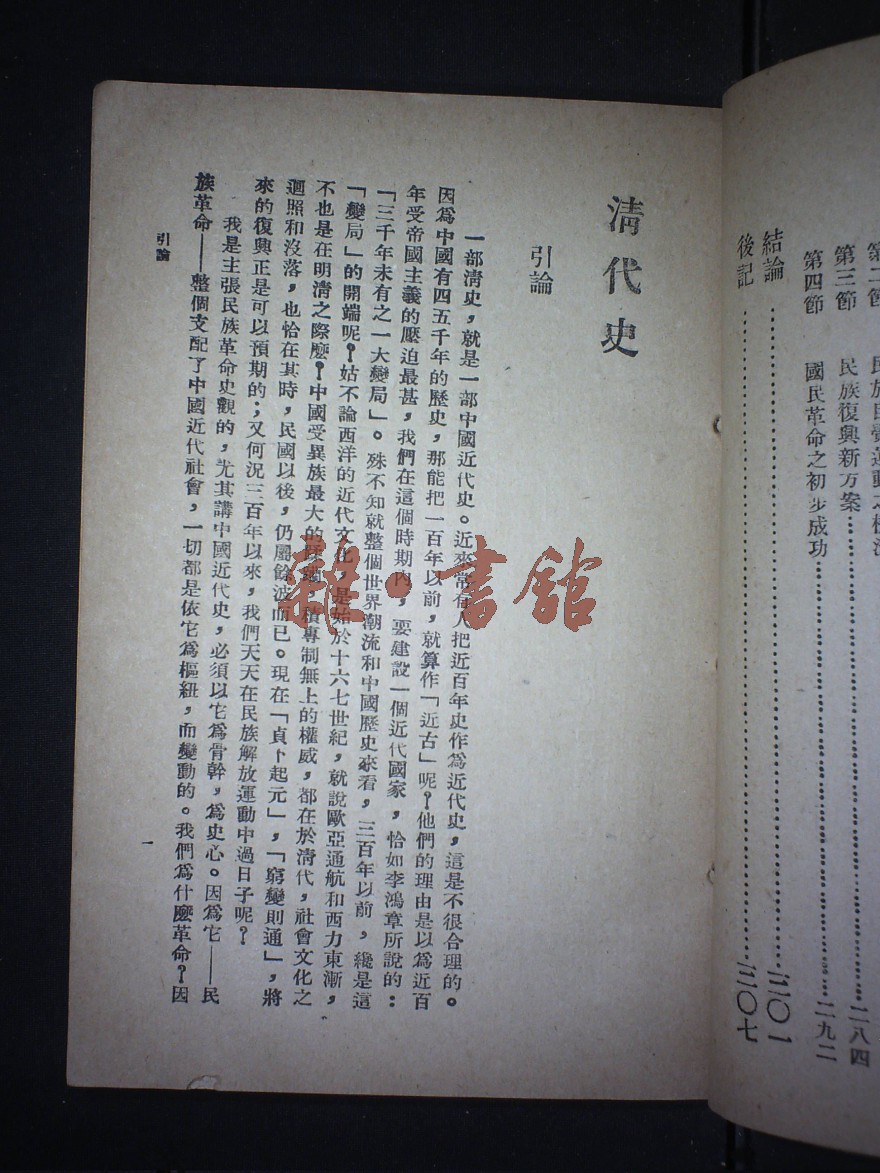 第二節 民族自覺運動之
第三節 民族復興新方案……………二八四
第四節 國民革命之初步成功……………二九二
結論……………三〇一
後記……………三〇七
清代史
引論
一部清史，就是一部中國近代史。近來常有人把近百年史作為近代史，這是不很合理的。
因為中國有四五千年的歷史，那能把一百年以前，就算作「近古」呢？他們的理由是以為近百
年受帝國主義的壓迫最甚，我們在這個時期內，要建設一個近代國家，恰如李鴻章所說的：
「三千年未有之一大變局」。殊不知就整個世界潮流和中國歷史來看，三百年以前，纔是這
「變局」的開端呢？姑不論西洋的近代文化，是始於十六七世紀，就說歐亞通航和西力東漸，
不也是在明清之際麼？中國受異族最大的蹂躪，積專制無上的權威，都在於清代，社會文化之
迴照和沒落，也恰在其時，民國以後，仍屬餘波而已。現在「貞卜起元」，「窮變則通」，將
來的復興正是可以預期的；又何況三百年以來，我們天天在民族解放運動中過日子呢？
我是主張民族革命史觀的，尤其講中國近代史，必須以它為骨幹，為史心。因為它——民
族革命——整個支配了中國近代社會，一切都是依它為樞紐，而變動的。我們為什麼革命？因
引論
一
雜·書館